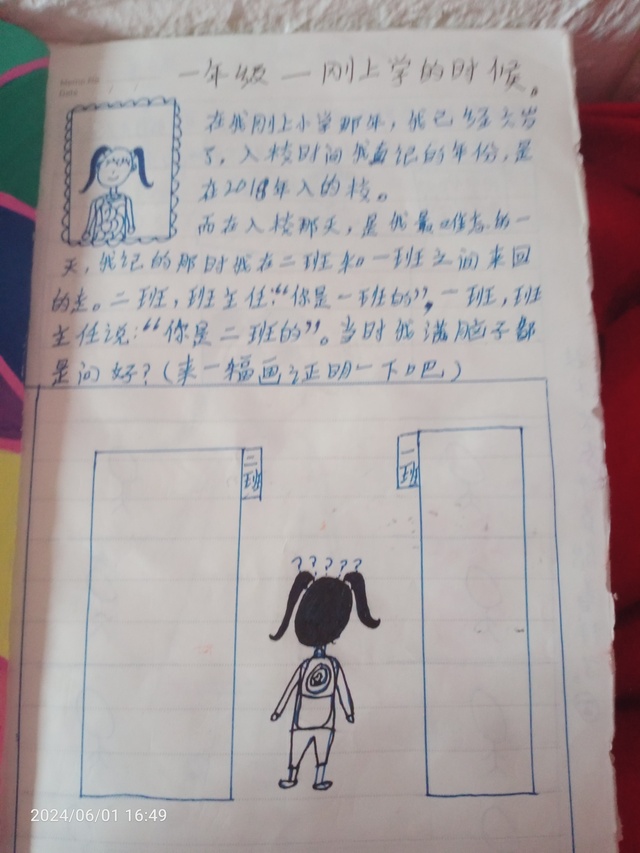 一年级—刚上学的时候。
在我刚上小学那年,我已经六岁
了,入校时间我有记的年份,是
在2018年入的校。
而在入校那天,是我最难忘的一
天,我记的那时我在二班和一班之间来回
的走。二班,班主任:“你是一班的”,一班,班
主任说:“你是二班的”。当时我满脑子都
是问好?(来一幅画证明一下吧)
二班
一班
? ? ? ? ?
2024/06/01 16:49